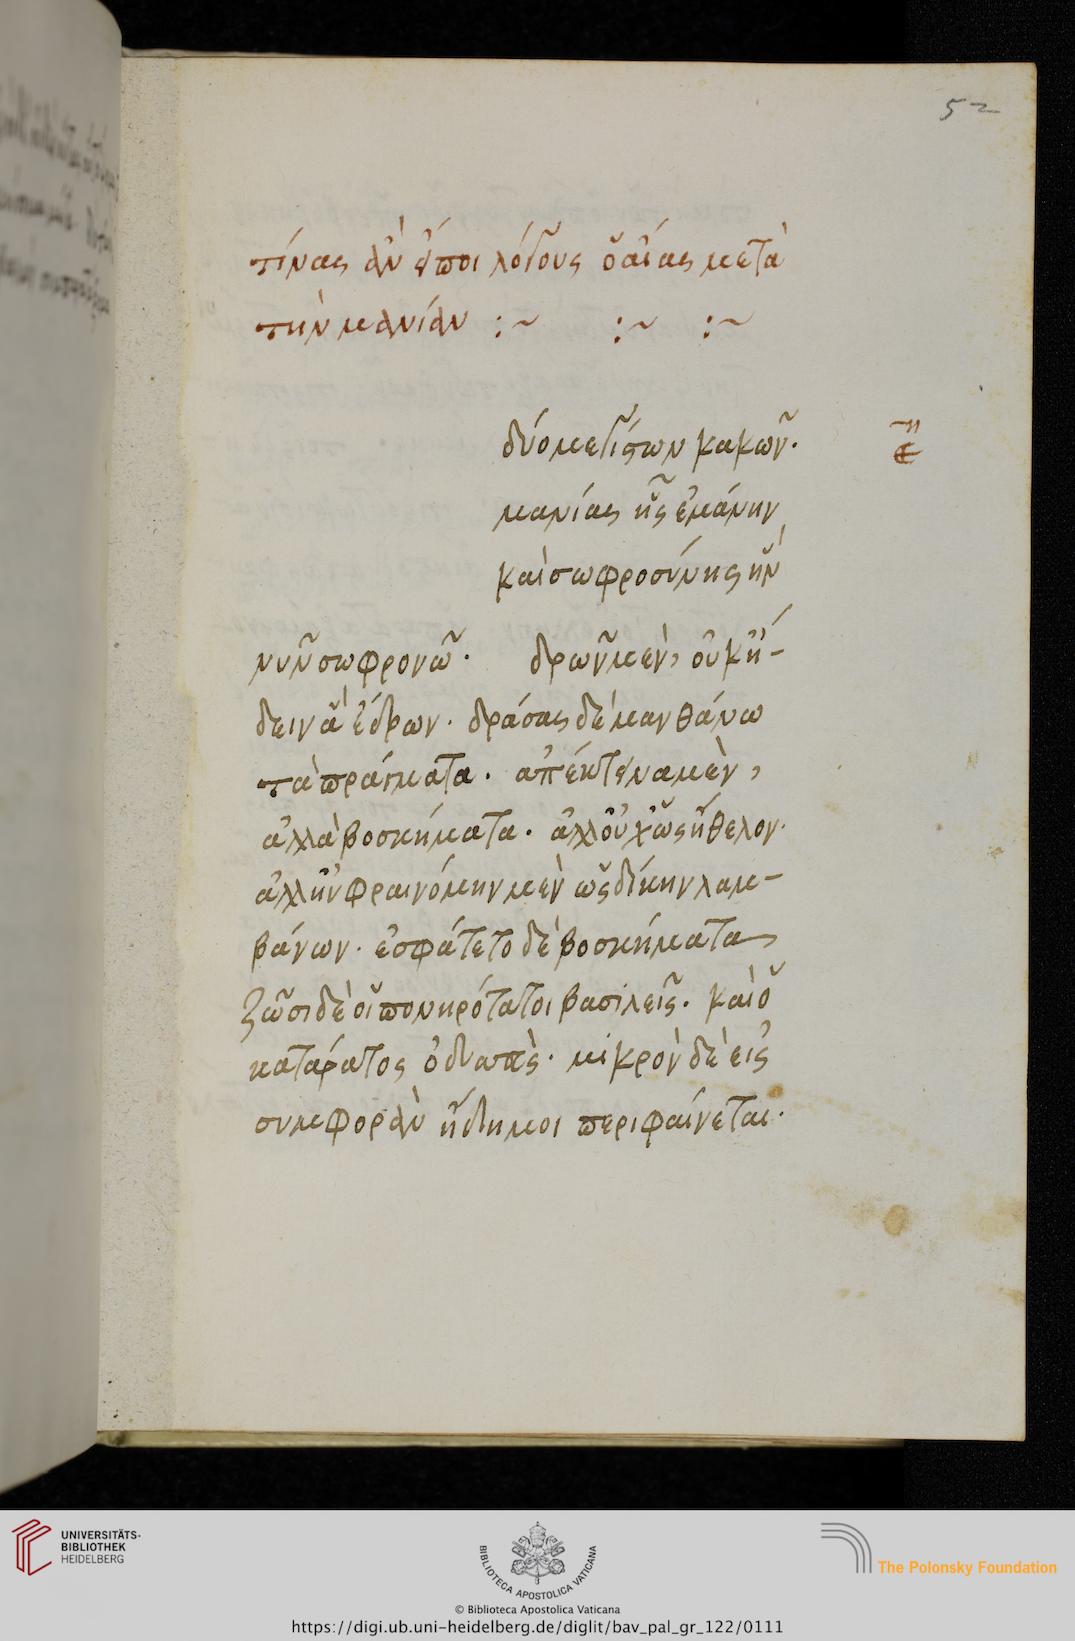 52
τίνας ἂν εἴποι λόγους ὁ αἴας μετὰ
τὴν μανίαν :~ :~ :~
δύο μεγίστων κακῶν.
μανίας ἧς ἐμάνην
καὶ σωφροσύνης ἣν
νυν σωφρονῶ. δρῶν μὲν, οὐκ ἤ-
δειν ἃ ἔδρων. δράσας δὲ μανθάνω
τὰ πράγματα. ἀπέκτεινα μὲν,
ἀλλὰ βοσκήματα. ἀλλ οὐχ ὡς ἤθελον.
ἀλλ ηὐφραινόμην μὲν ὡς δίκην λαμ-
βάνων. ἐσφάτετο δὲ βοσκήματα
ζῶσι δὲ οἱ πονηρότατοι βασιλεῖς. καὶ ὁ
κατάρατος ὀδυσσεύς. μικρὸν δὲ εἰς
συμφορὰν ἤδη μοι περιφαίνεται.
UNIVERSITÄTS-
BIBLIOTHEK
HEIDELBERG
BIBLIOTECA APOSTOLICA VATICANA
The Polonsky Foundation
© Biblioteca Apostolica Vaticana
https://digi.ub.uni-heidelberg.de/diglit/bav_pal_gr_122/0111